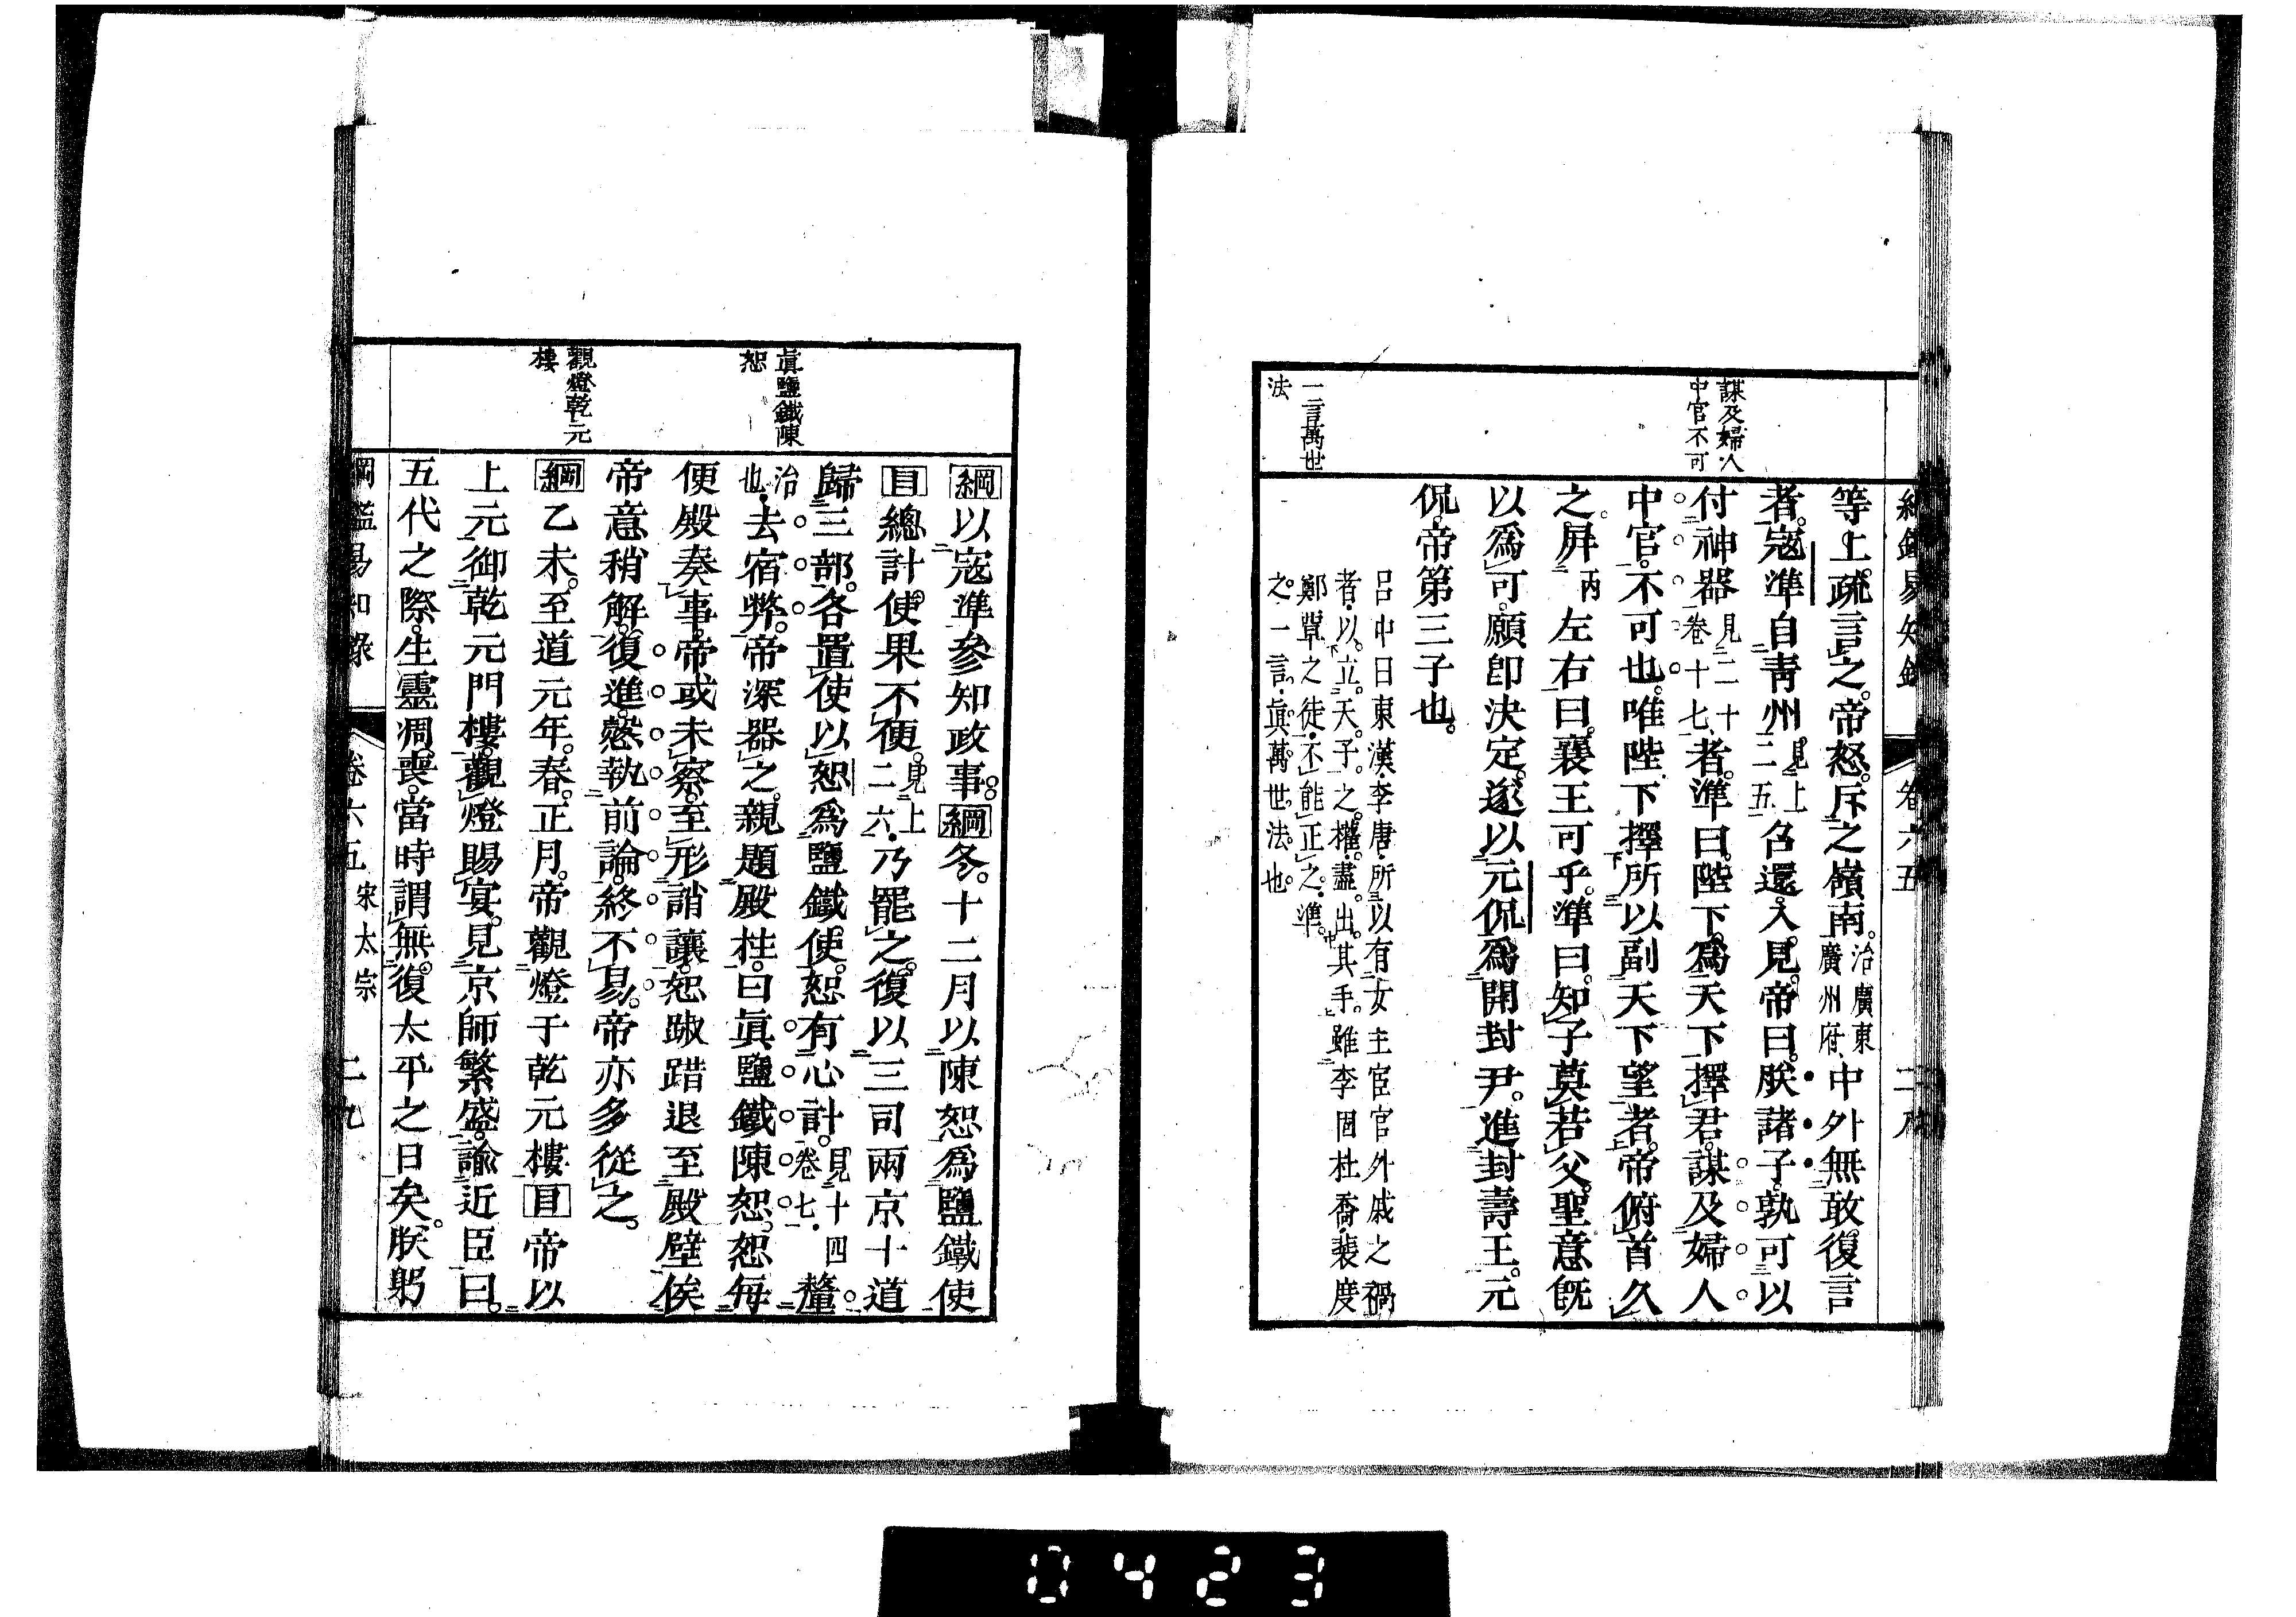 謀及婦人
中官不可
一言萬世
法
卷六五
等上疏言之。帝怒。斥之嶺南。治廣東廣州府、中外無敢復言
者。寇準自靑州。見上二五。召還。入見。帝曰。朕諸子。孰可以
付神器見二十卷十七、者。準曰。陛下。爲天下擇君。謀及婦人
中官。不可也。唯陛下擇所以副天下望者。帝俯首久
之。屛丙左右曰。襄王可乎。準曰。知子莫若父。聖意旣
以爲可。願卽決定。遂以元侃爲開封尹。進封壽王。元
侃。帝第三子也。
呂中曰東漢李唐所以有女主宦官外戚之禍
者。以立天子之權。盡出其手。雖李固杜喬裴度
鄭覃之徒。不能正之。準
之一言。眞萬世法也。
眞鹽鐵陳
恕
觀燈乾元
樓
綱以寇準參知政事。綱冬。十二月以陳恕爲鹽鐵使
目總計使果不便。見上二六。乃罷之。復以三司兩京十道
歸三部。各置使以恕爲鹽鐵使。恕有心計。見十四卷七。釐
治也。去宿弊。帝深器之。親題殿柱。曰眞鹽鐵陳恕。恕每
便殿奏事。帝或未察。至形誚讓。恕踧踖退至殿壁俟
帝意稍解。復進。愨執前論。終不易。帝亦多從之。
綱乙未。至道元年。春。正月。帝觀燈于乾元樓目帝以
上元御乾元門樓。觀燈賜宴。見京師繁盛。諭近臣曰。
五代之際。生靈凋喪。當時謂無復太平之日矣。朕躬
綱鑑易知錄 卷六五 宋太宗 二九
0423